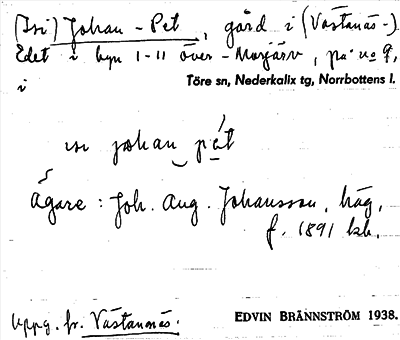 (Isi) Johan-Pet, gård i (Västanås-)
Edet i byn 1-11 över-Morjärv, på no 9,
i
Töre sn, Nederkalix tg, Norrbottens l.
isi johan pét
Ägare: Joh. Aug. Johansson, häg,
f. 1891 kb.
Uppg. fr. Västannäs.
EDVIN BRÄNNSTRÖM 1938.